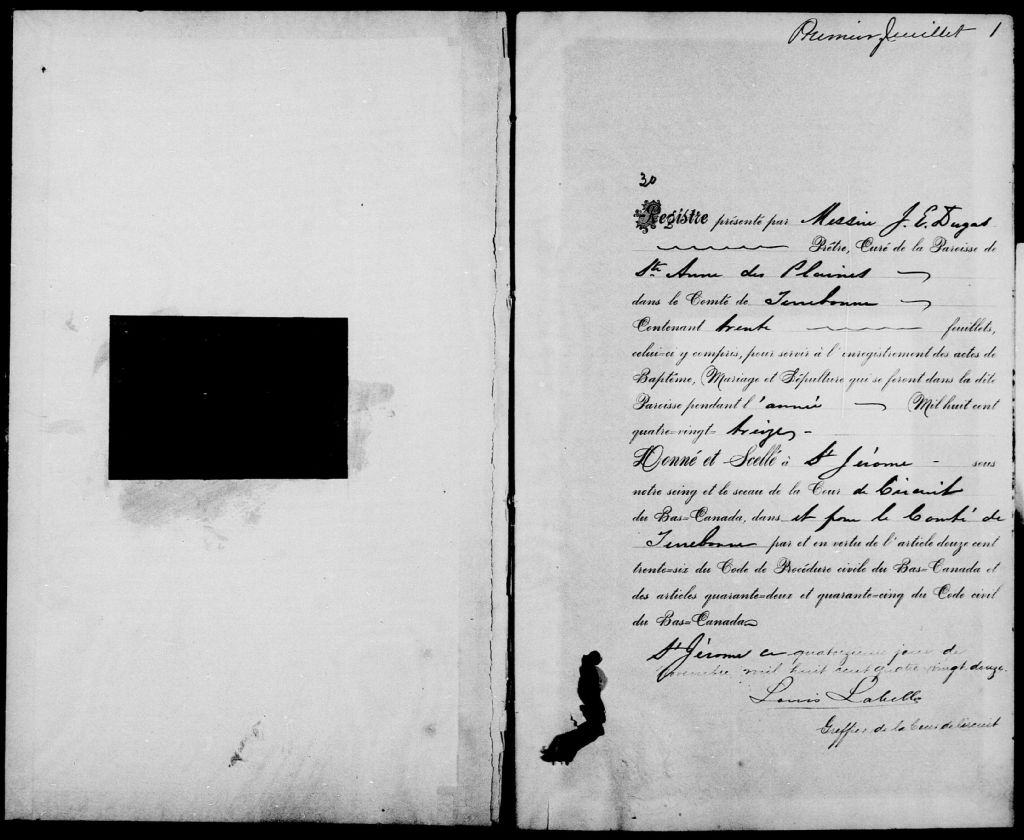 Premier feuillet 1
30
Registre présenté par Messire J. E. Dugas
Prêtre, Curé de la Paroisse de
Ste Anne des Plaines
dans le Comté de Terrebonne
Contenant trente feuillets,
celui=ci y compris, pour servir à l'enregistrement des actes de
Baptême, Mariage et Sépulture qui se feront dans la dite
Paroisse pendant l'année Mil huit cent
quatre=vingt= treize
Donné et Scellé à St Jérome sous
notre seing et le sceau de la Cour de Circuit
du Bas=Canada, dans et pour le Comté de
Terrebonne par et en vertu de l'article douze cent
trente=six du Code de Procédure civile du Bas=Canada et
des articles quarante=deux et quarante=cinq du Code civil
du Bas=Canada
St Jérome ce quatorzième jour de
Novembre mil huit cent quatre vingt douze.
Louis Labelle
Greffier de la Cour de Circuit